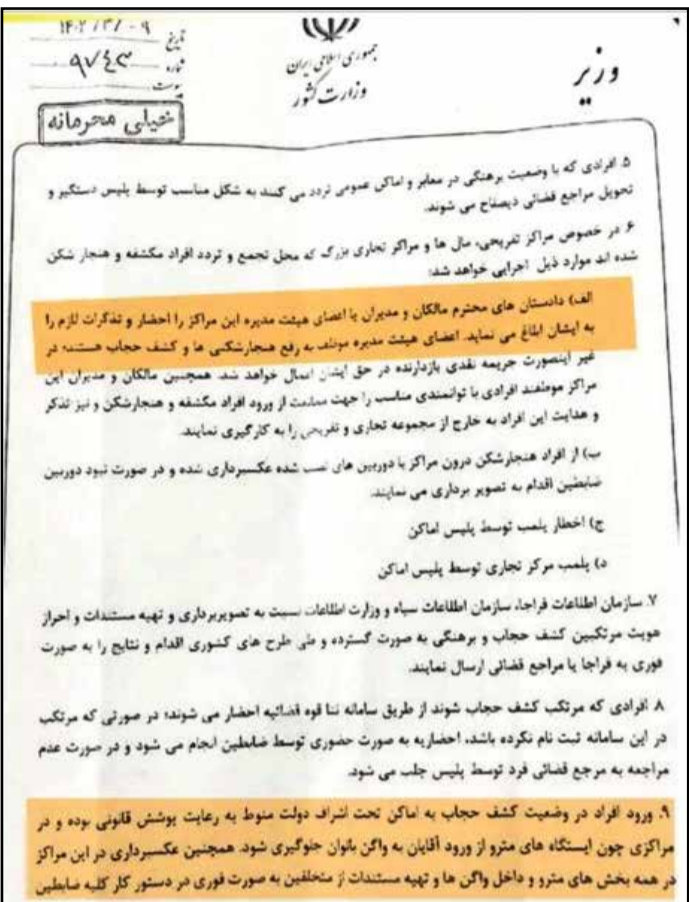 تاریخ ۱۴۰۲/۳/۰۹
شماره ۹۷۴۳
پیوست
جمهوری اسلامی ایران
وزارت کشور
وزیر
خیلی محرمانه
۵. افرادی که با وضعیت برهنگی در معابر و اماکن عمومی تردد می کنند به شکل مناسب توسط پلیس دستگیر و
تحویل مراجع قضائی ذیصلاح می شوند.
۶. در خصوص مراکز تفریحی، مال ها و مراکز تجاری بزرگ که محل تجمع و تردد افراد مکشفه و هنجار شکن
شده اند موارد ذیل اجرایی خواهد شد:
الف) دادستان های محترم مالکان و مدیران یا اعضای هیئت مدیره این مراکز را احضار و تذکرات لازم را
به ایشان ابلاغ می نماید. اعضای هیئت مدیره موظف به رفع هنجارشکنی ها و کشف حجاب هستند؛ در
غیر اینصورت جریمه نقدی بازدارنده در حق ایشان اعمال خواهد شد. همچنین مالکان و مدیران این
مراکز موظفند افرادی با توانمندی مناسب را جهت ممانعت از ورود افراد مکشفه و هنجارشکن و نیز تذکر
و هدایت این افراد به خارج از مجموعه تجاری و تفریحی را به کارگیری نمایند.
ب) از افراد هنجارشکن درون مراکز با دوربین های نصب شده عکسبرداری شده و در صورت نبود دوربین
ضابطین اقدام به تصویر برداری می نمایند.
ج) اخطار پلمب توسط پلیس اماکن
د) پلمب مرکز تجاری توسط پلیس اماکن
۷. سازمان اطلاعات فراجا، سازمان اطلاعات سپاه و وزارت اطلاعات نسبت به تصویربرداری و تهیه مستندات و احراز
هویت مرتکبین کشف حجاب و برهنگی به صورت گسترده و طی طرح های کشوری اقدام و نتایج را به صورت
فوری به فراجا یا مراجع قضائی ارسال نمایند.
۸. افرادی که مرتکب کشف حجاب شوند از طریق سامانه ثنا قوه قضائیه احضار می شوند؛ در صورتی که مرتکب
در این سامانه ثبت نام نکرده باشد، احضاریه به صورت حضوری توسط ضابطین انجام می شود و در صورت عدم
مراجعه به مرجع قضائی فرد توسط پلیس جلب می شود.
۹. ورود افراد در وضعیت کشف حجاب به اماکن تحت اشراف دولت منوط به رعایت پوشش قانونی بوده و در
مراکزی چون ایستگاه های مترو از ورود آقایان به واگن بانوان جلوگیری شود. همچنین عکسبرداری در این مراکز
در همه بخش های مترو و داخل واگن ها و تهیه مستندات از متخلفین به صورت فوری در دستور کار کلیه ضابطین